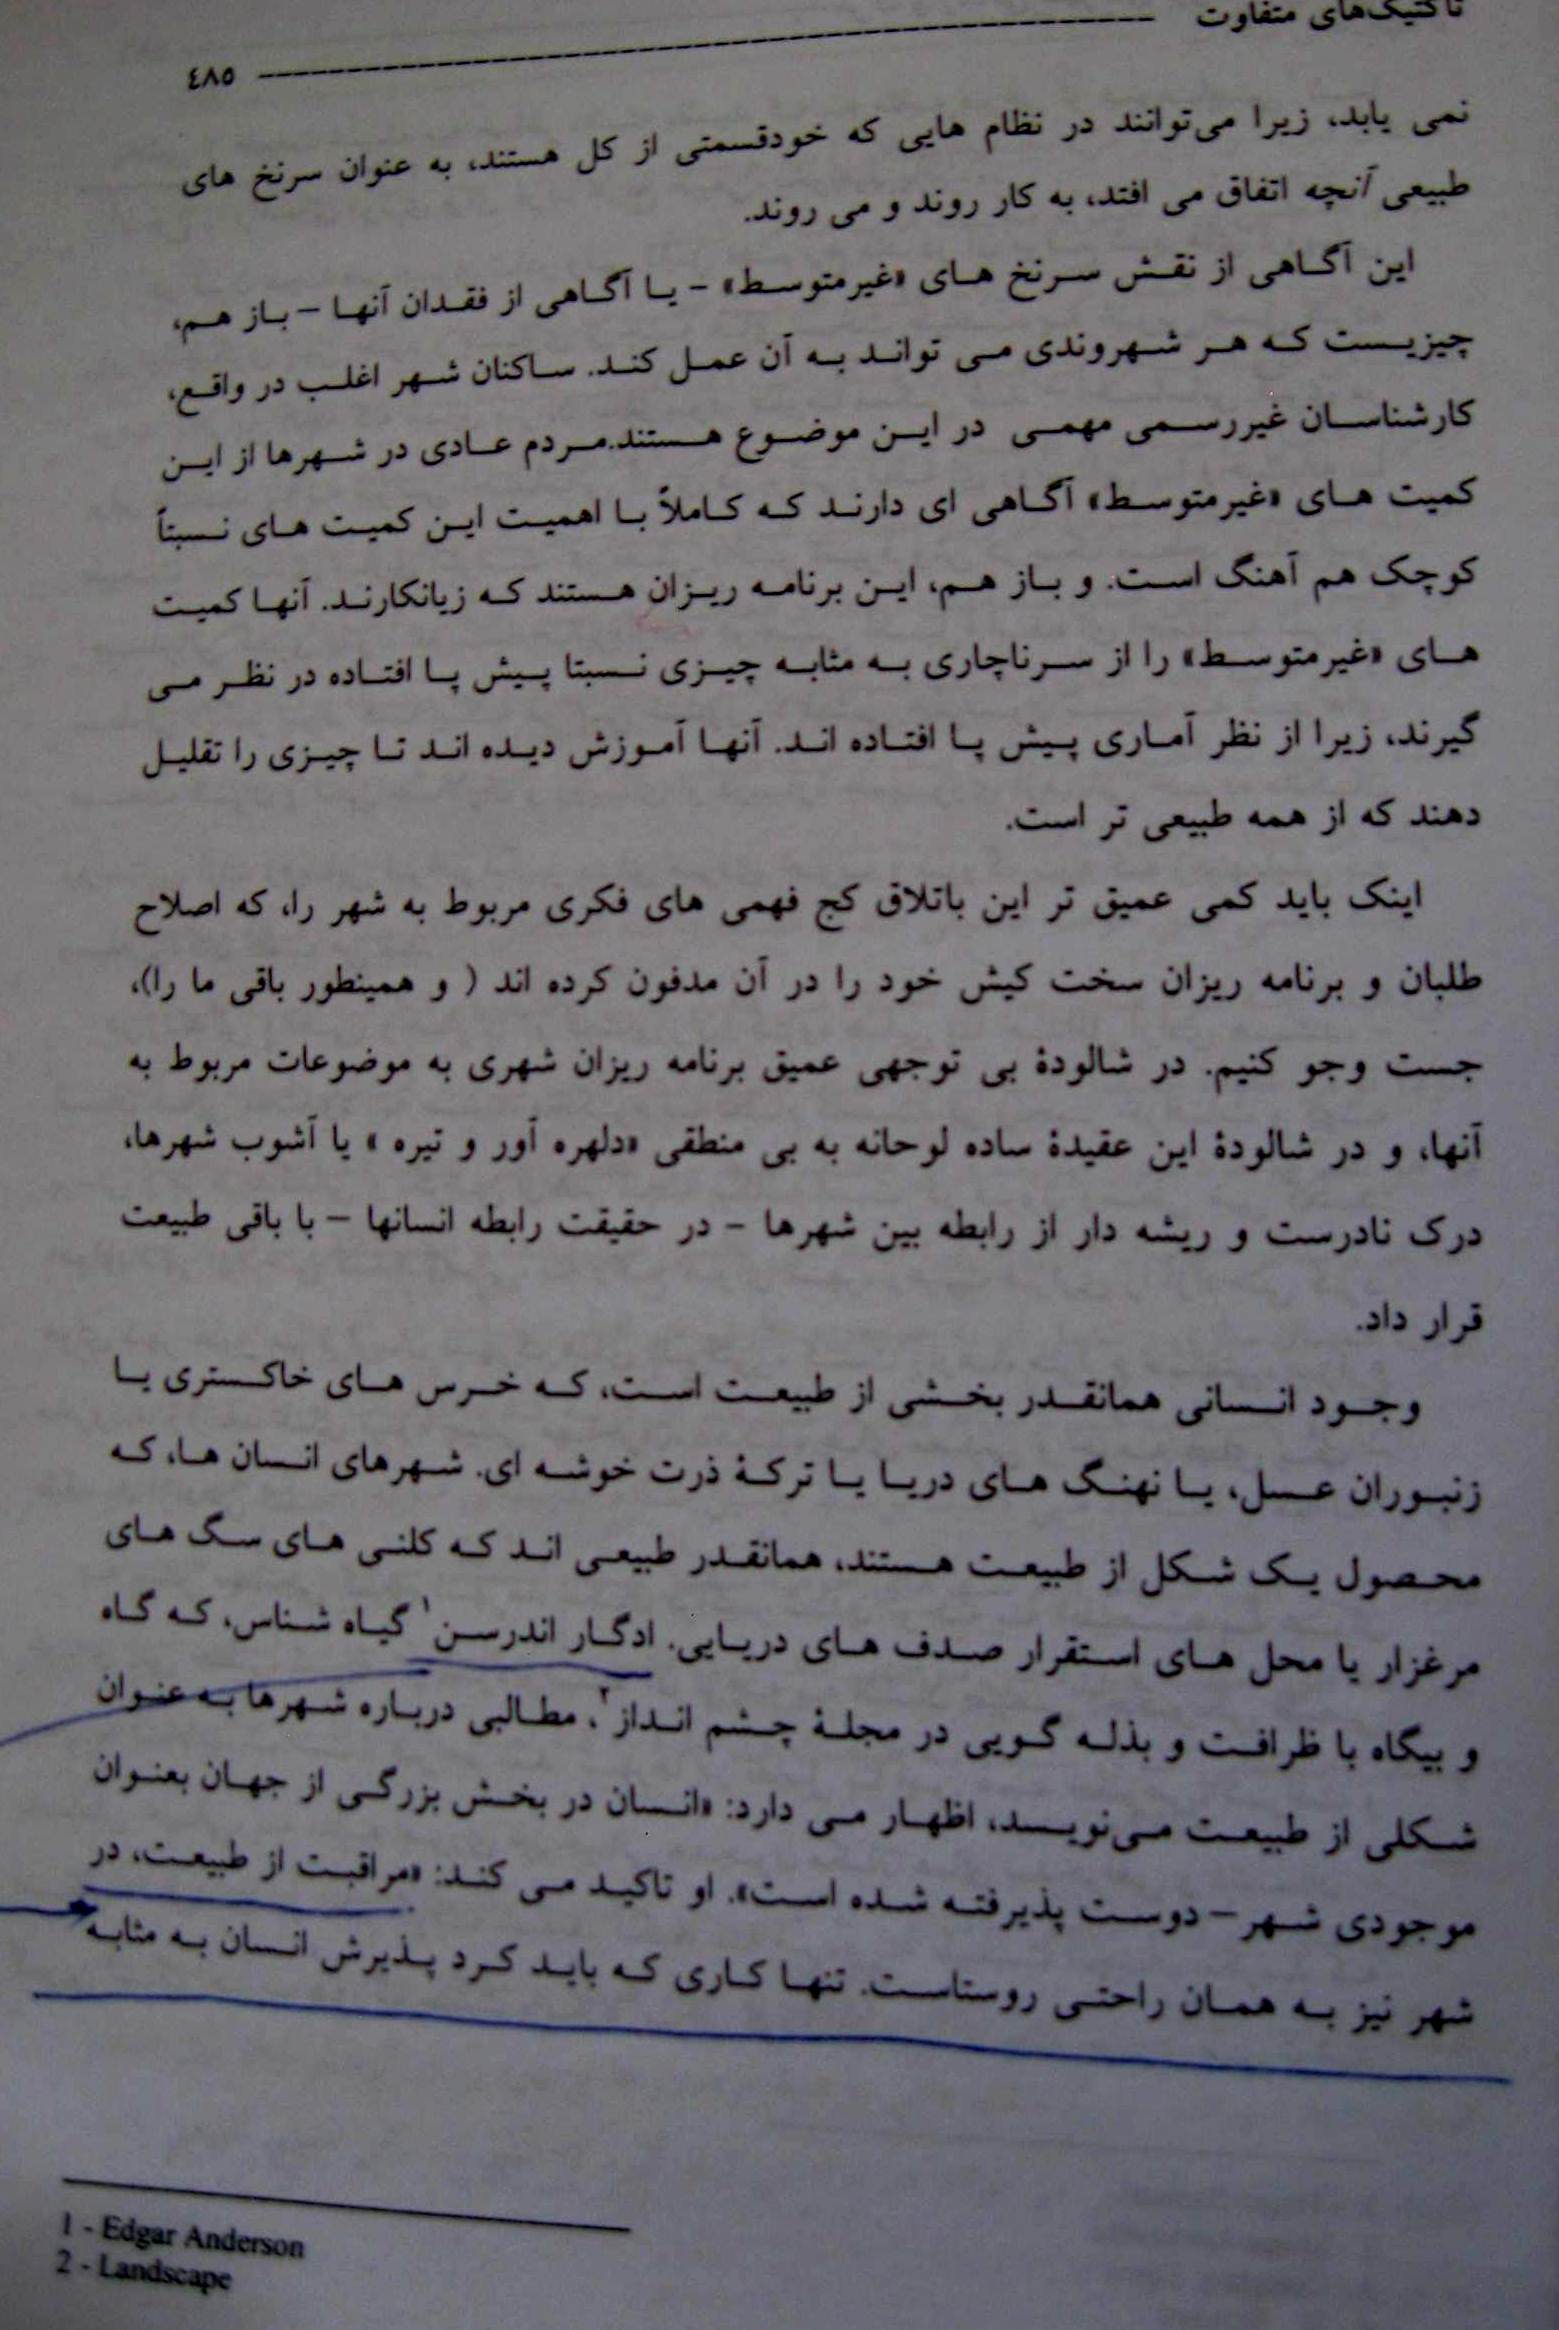 تاکتیک‌های متفاوت
٤٨٥
نمی یابد، زیرا می‌توانند در نظام هایی که خودقسمتی از کل هستند، به عنوان سرنخ های
طبیعی آنچه اتفاق می افتد، به کار روند و می روند.
این آگاهی از نقش سرنخ های «غیرمتوسط» - یا آگاهی از فقدان آنها – باز هم،
چیزیست که هر شهروندی می تواند به آن عمل کند. ساکنان شهر اغلب در واقع،
کارشناسان غیررسمی مهمی در این موضوع هستند.مردم عادی در شهرها از این
کمیت های «غیرمتوسط» آگاهی ای دارند که کاملاً با اهمیت این کمیت های نسبتاً
کوچک هم آهنگ است. و باز هم، این برنامه ریزان هستند که زیانکارند. آنها کمیت
های «غیرمتوسط» را از سرناچاری به مثابه چیزی نسبتا پیش پا افتاده در نظر می
گیرند، زیرا از نظر آماری پیش پا افتاده اند. آنها آموزش دیده اند تا چیزی را تقلیل
دهند که از همه طبیعی تر است.
اینک باید کمی عمیق تر این باتلاق کج فهمی های فکری مربوط به شهر را، که اصلاح
طلبان و برنامه ریزان سخت کیش خود را در آن مدفون کرده اند ( و همینطور باقی ما را)،
جست وجو کنیم. در شالودۀ بی توجهی عمیق برنامه ریزان شهری به موضوعات مربوط به
آنها، و در شالودۀ این عقیدۀ ساده لوحانه به بی منطقی «دلهره آور و تیره » یا آشوب شهرها،
درک نادرست و ریشه دار از رابطه بین شهرها - در حقیقت رابطه انسانها – با باقی طبیعت
قرار داد.
وجود انسانی همانقدر بخشی از طبیعت است، که خرس های خاکستری یا
زنبوران عسل، یا نهنگ های دریا یا ترکۀ ذرت خوشه ای. شهرهای انسان ها، که
محصول یک شکل از طبیعت هستند، همانقدر طبیعی اند که کلنی های سگ های
مرغزار یا محل های استقرار صدف های دریایی. ادگار اندرسن¹ گیاه شناس، که گاه
و بیگاه با ظرافت و بذله گویی در مجلۀ چشم انداز²، مطالبی درباره شهرها به عنوان
شکلی از طبیعت می‌نویسد، اظهار می دارد: «انسان در بخش بزرگی از جهان بعنوان
موجودی شهر – دوست پذیرفته شده است». او تاکید می کند: «مراقبت از طبیعت، در
شهر نیز به همان راحتی روستاست. تنها کاری که باید کرد پذیرش انسان به مثابه
1 - Edgar Anderson
2 - Landscape